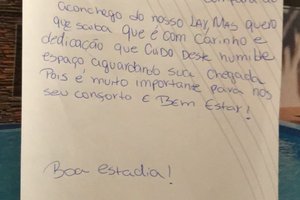 compara ao
aconchego do nosso LAR, MAS quero
que saiba que é com carinho e
dedicação que CUIDO Deste humilde
espaço aguardando sua chegada
Pois é muito importante para nos
seu conforto e Bem Estar!
Boa estadia!